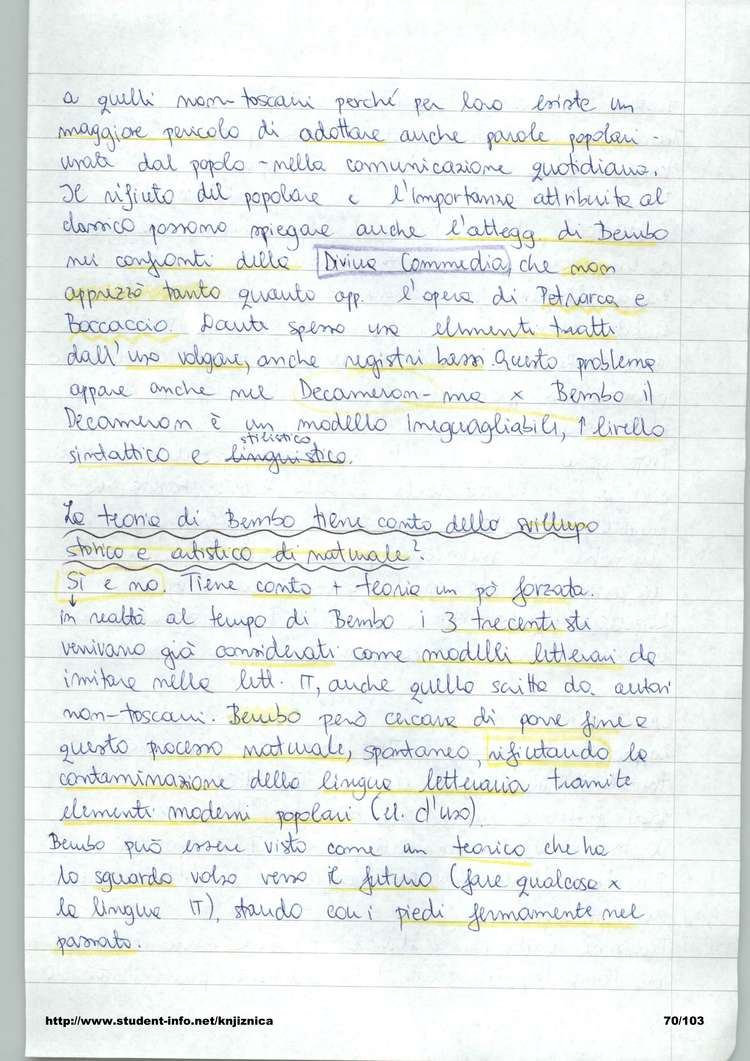 a quelli non-toscani perché per loro esiste un
maggiore pericolo di adottare anche parole popolari -
usate dal popolo - nella comunicazione quotidiana.
Il rifiuto del popolare e l'importanza attribuita al
classico possono spiegare anche l'attegg. di Bembo
nei confronti della Divina Commedia, che non
apprezzò tanto quanto app. l'opera di Petrarca e
Boccaccio. Dante spesso usa elementi tratti
dall'uso volgare, anche registri bassi. Questo problema
appare anche nel Decameron - ma x Bembo il
Decameron è un modello ineguagliabili, ↑ livello
stilistico
sintattico e linguistico.
La teoria di Bembo tiene conto dello sviluppo
storico e artistico di naturale?
Sì e no. Tiene conto + teoria un pò forzata.
in realtà al tempo di Bembo i 3 trecentisti
venivano già considerati come modelli letterari da
imitare nella lett. IT, anche quella scritta da autori
non-toscani. Bembo però cercava di porre fine a
questo processo naturale, spontaneo, rifiutando la
contaminazione della lingua letteraria tramite
elementi moderni popolari (el. d'uso)
Bembo può essere visto come un teorico che ha
lo sguardo volso verso il futuro (fare qualcosa x
la lingua IT), stando con i piedi fermamente nel
passato.
http://www.student-info.net/knjiznica 70/103